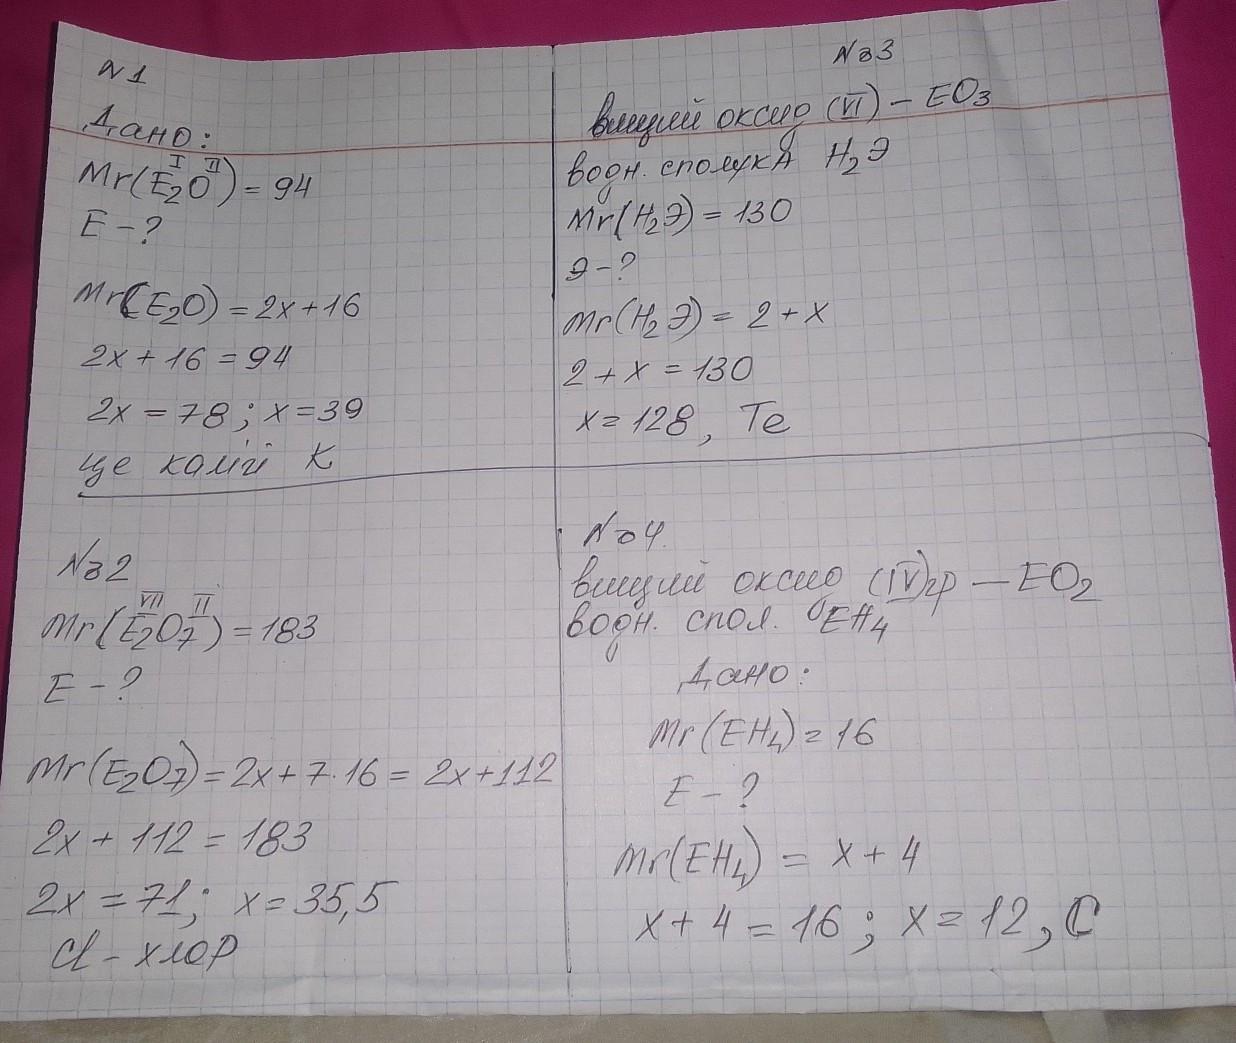 №1
Дано:
I II
Mr(E₂O) = 94
E - ?
Mr(E₂O) = 2x + 16
2x + 16 = 94
2x = 78; x = 39
це калій K
№2
VII II
Mr(E₂O₇) = 183
E - ?
Mr(E₂O₇) = 2x + 7·16 = 2x + 112
2x + 112 = 183
2x = 71; x = 35,5
Cl - хлор
№3
вищий оксид (VI) - EO₃
водн. сполука H₂Э
Mr(H₂Э) = 130
Э - ?
Mr(H₂Э) = 2 + x
2 + x = 130
x = 128, Te
№4.
вищий оксид (IV)гр — EO₂
водн. спол. EH₄
Дано:
Mr(EH₄) = 16
E - ?
Mr(EH₄) = x + 4
x + 4 = 16; x = 12, C